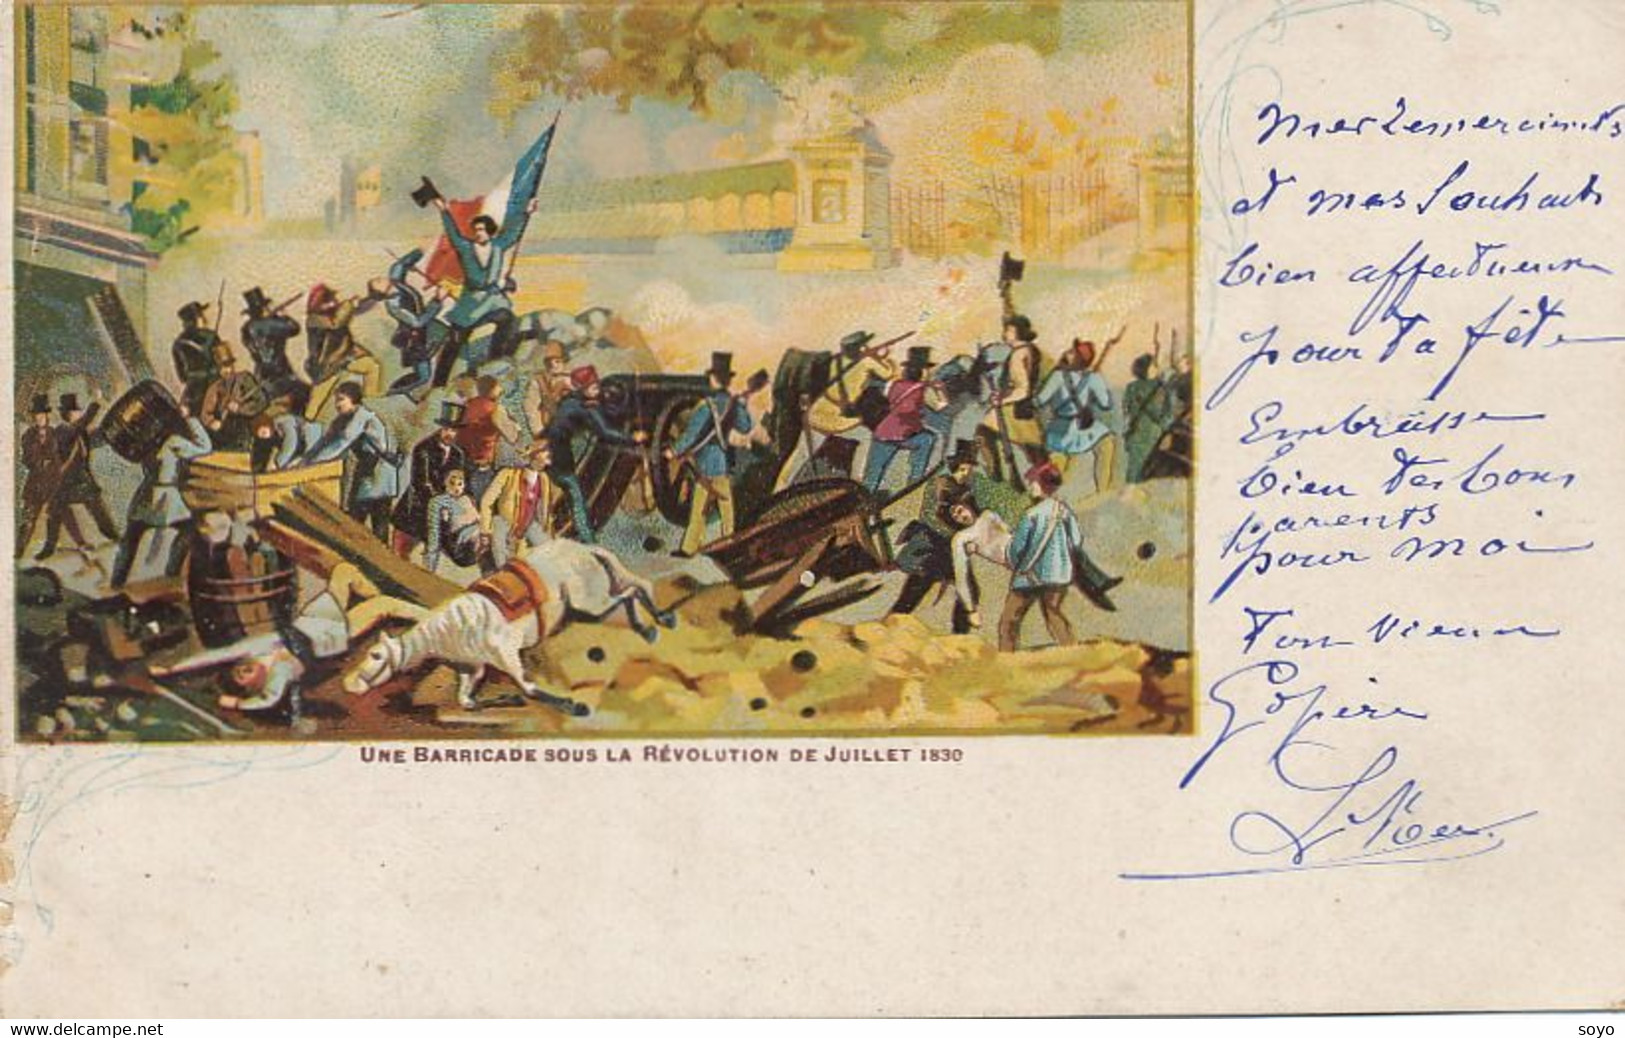 Mes remerciements
et mes souhaits
bien affectueux
pour ta fête
Embrasse
bien tes bons
parents
pour moi
Ton vieux
UNE BARRICADE SOUS LA RÉVOLUTION DE JUILLET 1830
www.delcampe.net
soyo